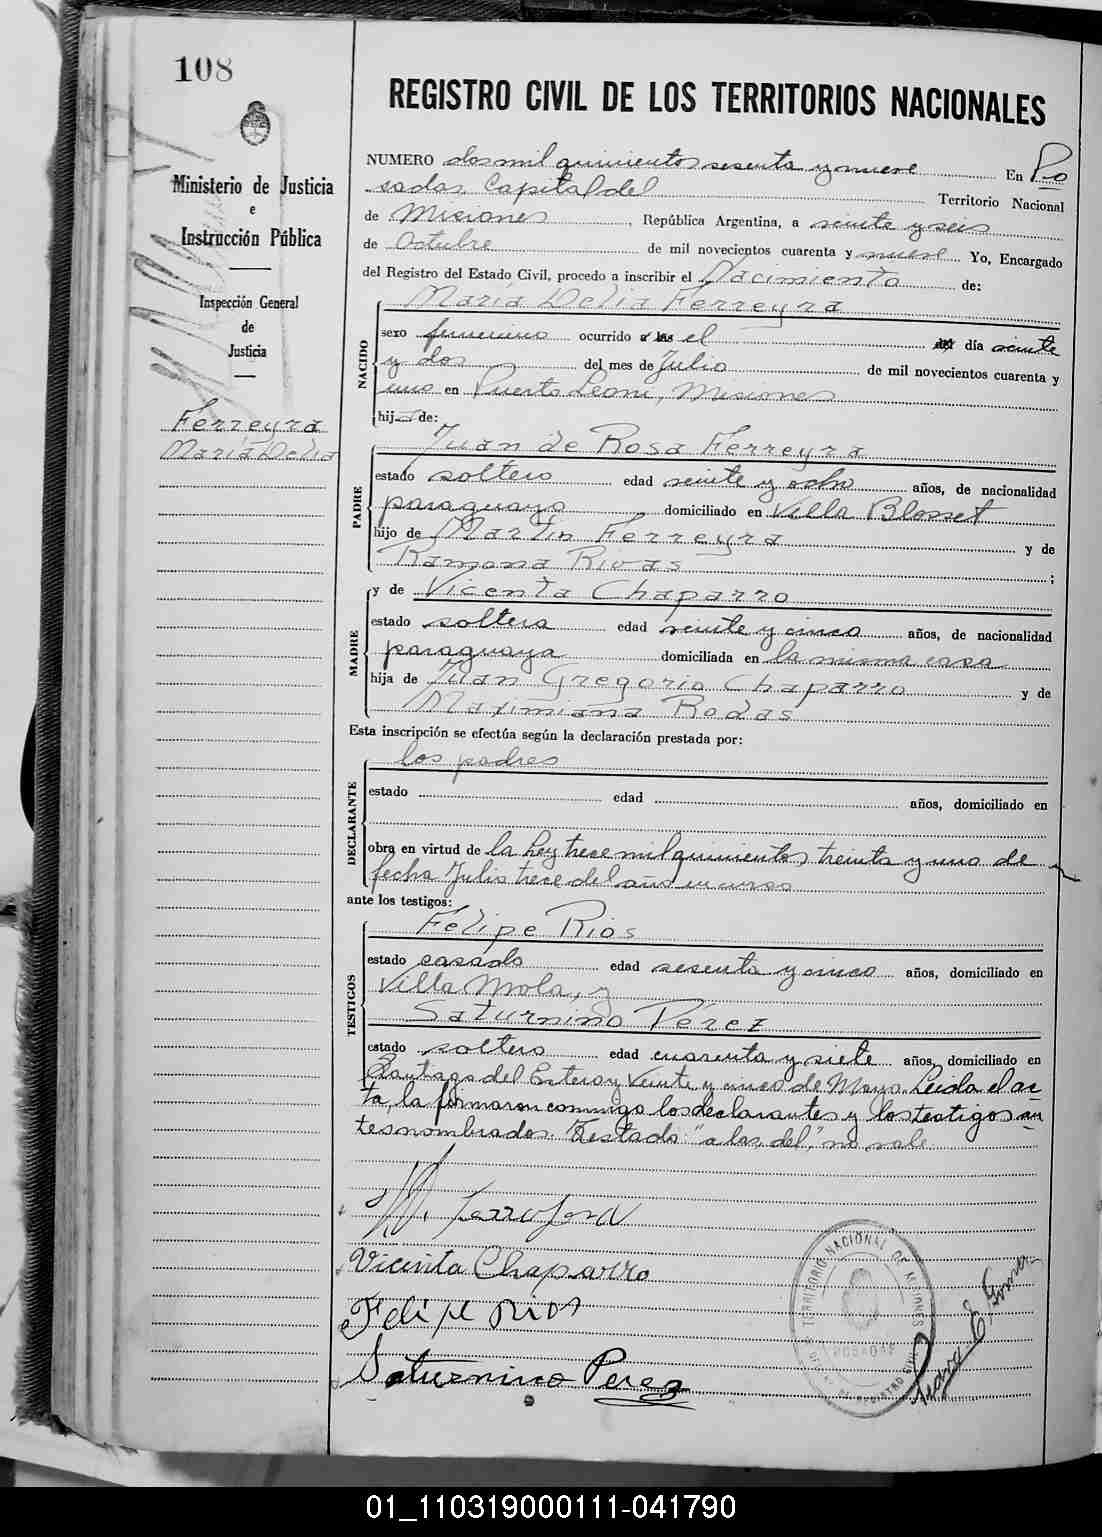 108
REGISTRO CIVIL DE LOS TERRITORIOS NACIONALES
Ministerio de Justicia
e
Instrucción Pública
Inspección General
de
Justicia
Ferreyra
María Delia
NUMERO dos mil quinientos sesenta y nueve En Po
sadas, Capital del Territorio Nacional
de Misiones, República Argentina, a veinte y seis
de Octubre de mil novecientos cuarenta y nueve Yo, Encargado
del Registro del Estado Civil, procedo a inscribir el Nacimiento de:
María Delia Ferreyra
NACIDO
sexo femenino ocurrido a las el del día veinte
y dos del mes de Julio de mil novecientos cuarenta y
uno en Puerto Leoni, Misiones
hij de:
Juan de Rosa Ferreyra
PADRE
estado soltero edad veinte y ocho años, de nacionalidad
paraguayo domiciliado en Villa Blosset
hijo de Martín Ferreyra y de
Ramona Rivas;
y de Vicenta Chaparro
MADRE
estado soltera edad veinte y cinco años, de nacionalidad
paraguaya domiciliada en la misma casa
hija de Juan Gregorio Chaparro y de
Maximiana Rodas
Esta inscripción se efectúa según la declaración prestada por:
los padres
DECLARANTE
estado edad años, domiciliado en
obra en virtud de la Ley trece mil quinientos treinta y uno de
fecha Julio trece del año en curso
ante los testigos:
Felipe Rios
TESTIGOS
estado casado edad sesenta y cinco años, domiciliado en
Villa Mola, y
Saturnino Pérez
estado soltero edad cuarenta y siete años, domiciliado en
Santiago del Estero y Veinte y cinco de Mayo. Leida el ac-
ta, la firmaron conmigo los declarantes y los testigos an
tes nombrados. Testado: "a las, del," no vale.
Vicenta Chaparro
Felipe Rios
Saturnino Perez
TERRITORIO NACIONAL DE MISIONES
POSADAS
REGISTRO CIVIL
01_110319000111-041790